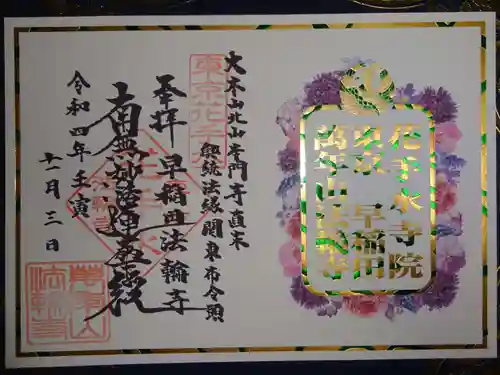 花手水寺院
東京 早稲田
萬年山法輪寺
大本山北山本門寺直末
興統法縁関東布令頭
東京花手水
奉拝 早稲田法輪寺
南無妙法蓮華経
令和四年壬寅
十一月三日
萬年山
法輪寺